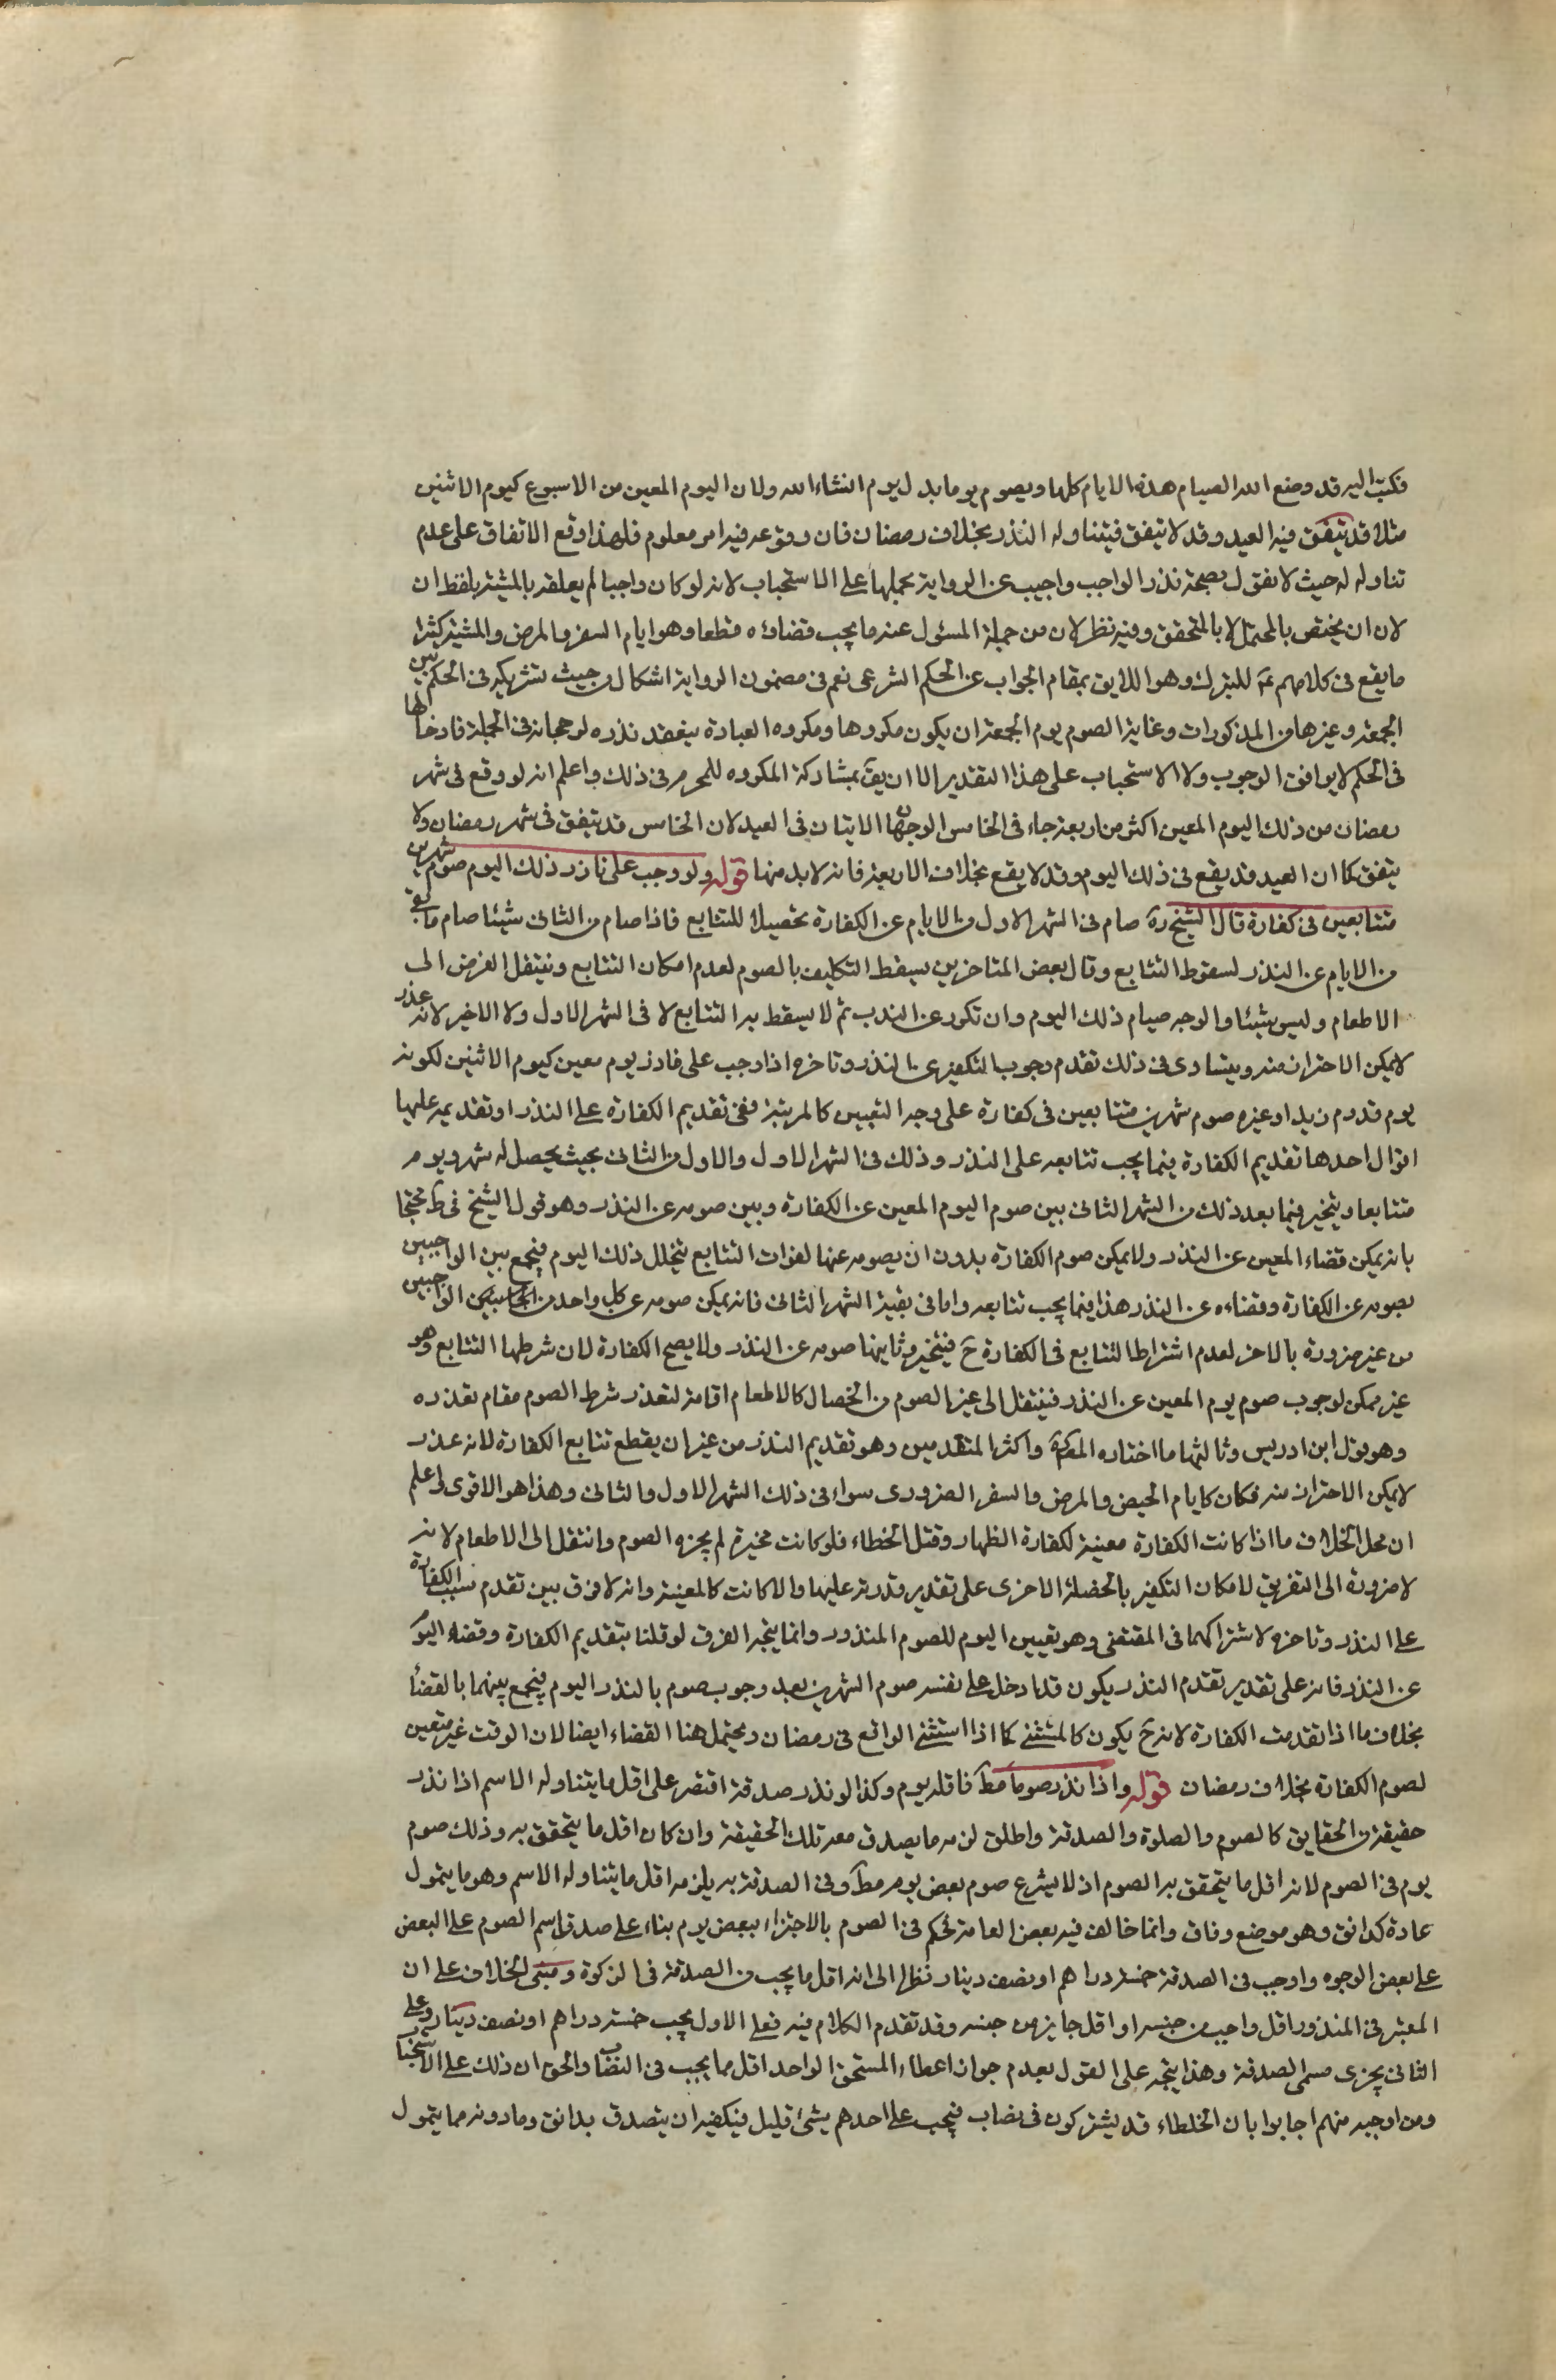 فكتب اليه قد وضع الله الصيام هذه الايام كلها ويصوم يوما بدل يوم انشاء الله ولان اليوم المعين من الاسبوع كيوم الاثنين
مثلا قد يتفق فيه العيد وقد لا يتفق فيتناوله النذر بخلاف رمضان فان وقوعه فيه امر معلوم فلهذا وقع الاتفاق على عدم
تناوله له حيث لا نقول بصحة نذر الواجب واجيب عن الرواية بحملها على الاستحباب لانه لو كان واجبا لم يعلقه بالمشية بلفظ ان
لان ان يختص بالمحتمل لا بالمتحقق وفيه نظر لان من جملة المسئول عنه ما يجب قضاؤه قطعا وهو ايام السفر والمرض والمشية كثيرا
ما يقع في كلامهم عَ للتبرك وهو اللايق بمقام الجواب عن الحكم الشرعى نعم في مضمون الرواية اشكال من حيث تشريكه في الحكم بين
الجمعة وغيرها من المذكورات وغاية الصوم يوم الجمعة ان يكون مكروها ومكروه العبادة ينعقد نذره لرجحانه في الجملة فادخالها
في الحكم لا يوافق الوجوب ولا الاستحباب على هذا التقدير الا ان يقَ بمشاركة المكروه للمحرم في ذلك واعلم انه لو وقع في شهر
رمضان من ذلك اليوم المعين اكثر من اربعة جاء في الخامس الوجهان الاتيان في العيد لان الخامس قد يتفق في شهر رمضان ولا
يتفق كما ان العيد قد يقع في ذلك اليوم وقد لا يقع بخلاف الاربعة فانه لا بد منها قوله ولو وجب على ناذر ذلك اليوم صوم شهرين
متتابعين في كفارة قال الشيخ رهَ صام في الشهر الاول من الايام عن الكفارة تحصيلا للتتابع فاذا صام من الثانى شيئا صام ما بقى
من الايام عن النذر لسقوط التتابع وقال بعض المتاخرين يسقط التكليف بالصوم لعدم امكان التتابع وينتقل الفرض الى
الاطعام وليس شيئا والوجه صيام ذلك اليوم وان تكرر عن الندب ثم لا يسقط به التتابع لا في الشهر الاول ولا الاخير لانه عذر
لا يمكن الاحتراز منه ويتساوى في ذلك تقدم وجوب التكفير عن النذر وتاخره اذا وجب على ناذر يوم معين كيوم الاثنين لكونه
يوم قدوم زيد او غيره صوم شهرين متتابعين في كفارة على وجه التعيين كالمرتبة ففي تقديم الكفارة على النذر او تقديمه عليها
اقوال احدها تقديم الكفارة فيما يجب تتابعه على النذر وذلك في الشهر الاول والاول من الثانى بحيث يحصل له شهر ويوم
متتابعا ويتخير فيما بعد ذلك من الشهر الثانى بين صوم اليوم المعين عن الكفارة وبين صومه عن النذر وهو قول الشيخ في طَ محتجا
بانه يمكن قضاء المعين عن النذر ولا يمكن صوم الكفارة بدون ان يصومه عنها لفوات التتابع بتخلل ذلك اليوم فيجمع بين الواجبين
بصومه عن الكفارة وقضاءه عن النذر هذا فيما يجب تتابعه واما في بقية الشهر الثانى فانه يمكن صومه عن كل واحد من الواجبين
من غير ضرورة بالاخر لعدم اشتراط التتابع في الكفارة حَ فيتخير وثانيها صومه عن النذر ولا يصح الكفارة لان شرطها التتابع وهو
غير ممكن لوجوب صوم يوم المعين عن النذر فينتقل الى غير الصوم من الخصال كالاطعام اقامة لتعذر شرط الصوم مقام تعذره
وهو قول ابن ادريس وثالثها ما اختاره المصَ رهَ واكثر المتقدمين وهو تقديم النذر من غير ان يقطع تتابع الكفارة لانه عذر
لا يمكن الاحتراز منه فكان كايام الحيض والمرض والسفر الضرورى سواء في ذلك الشهر الاول والثانى وهذا هو الاقوى واعلم
ان محل الخلاف ما اذا كانت الكفارة معينة ككفارة الظهار وقتل الخطاء فلو كانت مخيرة لم يجزه الصوم وانتقل الى الاطعام لانه
لا ضرورة الى التفريق لامكان التكفير بالخصلة الاخرى على تقدير قدرته عليها والا كانت كالمعينة وانه لا فرق بين تقدم سبب الكفارة
على النذر وتاخره لاشتراكهما في المقتضى وهو تعيين اليوم للصوم المنذور وانما يتجه الفرق لو قلنا بتقديم الكفارة وقضاء اليوم
عن النذر فانه على تقدير تقدم النذر يكون قد ادخل على نفسه صوم الشهرين بعد وجوب صوم بالنذر اليوم فيجمع بينهما بالقضأ
بخلاف ما اذا تقدمت الكفارة لانه حَ يكون كالمستثنى كما اذا استثنى الواقع في رمضان ويحتمل هنا القضاء ايضا لان الوقت غير متعين
لصوم الكفارة بخلاف رمضان قوله واذا نذر صوما مطَ فاقله يوم وكذا لو نذر صدقة اقتصر على اقل ما يتناوله الاسم اذا نذر
حقيقة من الحقايق كالصوم والصلوة والصدقة واطلق لزمه ما يصدق معه تلك الحقيقة وان كان اقل ما يتحقق به وذلك صوم
يوم في الصوم لانه اقل ما يتحقق به الصوم اذ لا يشرع صوم بعض يوم مطَ وفي الصدقة به يلزمه اقل ما يتناوله الاسم وهو ما يتمول
عادة كدانق وهو موضع وفاق وانما خالف فيه بعض العامة فحكم في الصوم بالاجتزاء ببعض يوم بناء على صدق اسم الصوم على البعض
على بعض الوجوه واوجب في الصدقة خمسة دراهم او نصف دينار نظرا الى انه اقل ما يجب من الصدقة في الزكوة ومبنى الخلاف على ان
المعتبر في المنذور اقل واجب من جنسه او اقل جايز من جنسه وقد تقدم الكلام فيه فعلى الاول يجب خمسة دراهم او نصف دينار وعلى
الثانى يجزى مسمى الصدقة وهذا يتجه على القول بعدم جواز اعطاء المستحق الواحد اقل مما يجب في النصاب والحق ان ذلك على الاستحباب
ومن اوجبه منهم اجابوا بان الخلطاء قد يشتركون في نصاب فيجب على احدهم شئ قليل فيكفيه ان يتصدق بدانق وما دونه مما يتمول